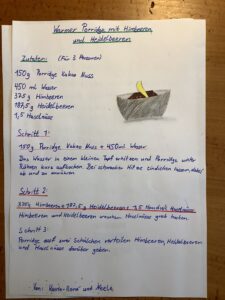 Warmer Porridge mit Himbeeren
und Heidelbeeren
Zutaten: (Für 3 Personen)
150g Porridge Kakao Nuss
450 ml Wasser
375g Himbeeren
187,5g Heidelbeeren
1,5 Haselnüsse
Schritt 1:
150g Porridge Kakao Nuss + 450ml Wasser
Das Wasser in einem kleinen Topf erhitzen und Porridge unter
Rühren kurz aufkochen. Bei schwacher Hitze eindicken lassen, dabei
ab und zu umrühren.
Schritt 2:
375g Himbeeren + 187,5g Heidelbeeren + 1,5 Haselnüsse
Himbeeren und Heidelbeeren waschen Haselnüsse grob hacken.
Schritt 3:
Porridge auf zwei Schälchen verteilen Himbeeren, Heidelbeeren
und Haselnüsse darüber geben.
Von: und Neele